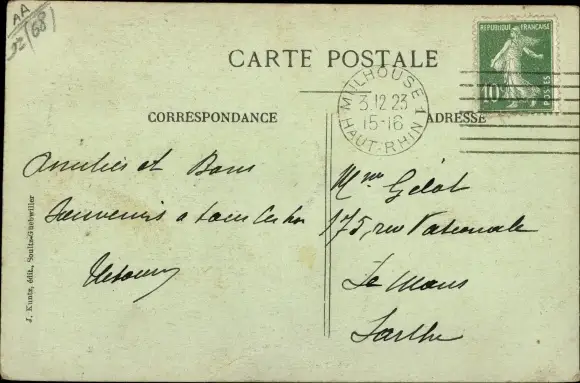 AA
(68)
CARTE POSTALE
RÉPUBLIQUE FRANÇAISE
10c
POSTES
MULHOUSE 1
3.12 23
15-16
HAUT-RHIN
CORRESPONDANCE
ADRESSE
Amitiés et Bons
Souvenirs a tous
Mme Gélot
175, rue Nationale
Le Mans
Sarthe
J. Kuntz, édit., Soultz-Guebwiller